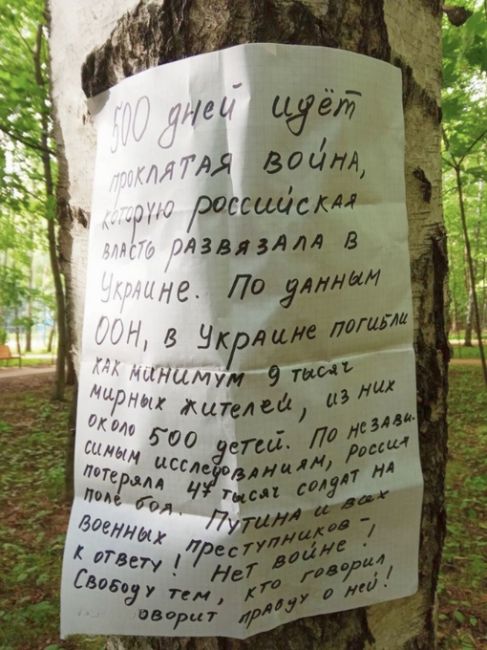 500 дней идёт
проклятая война,
которую российская
власть развязала в
Украине. По данным
ООН, в Украине погибли
как минимум 9 тысяч
мирных жителей, из них
около 500 детей. По незави-
симым исследованиям, Россия
потеряла 47 тысяч солдат на
поле боя. Путина и всех
военных преступников –
к ответу! Нет войне!
Свободу тем, кто говорил,
оворит правду о ней!